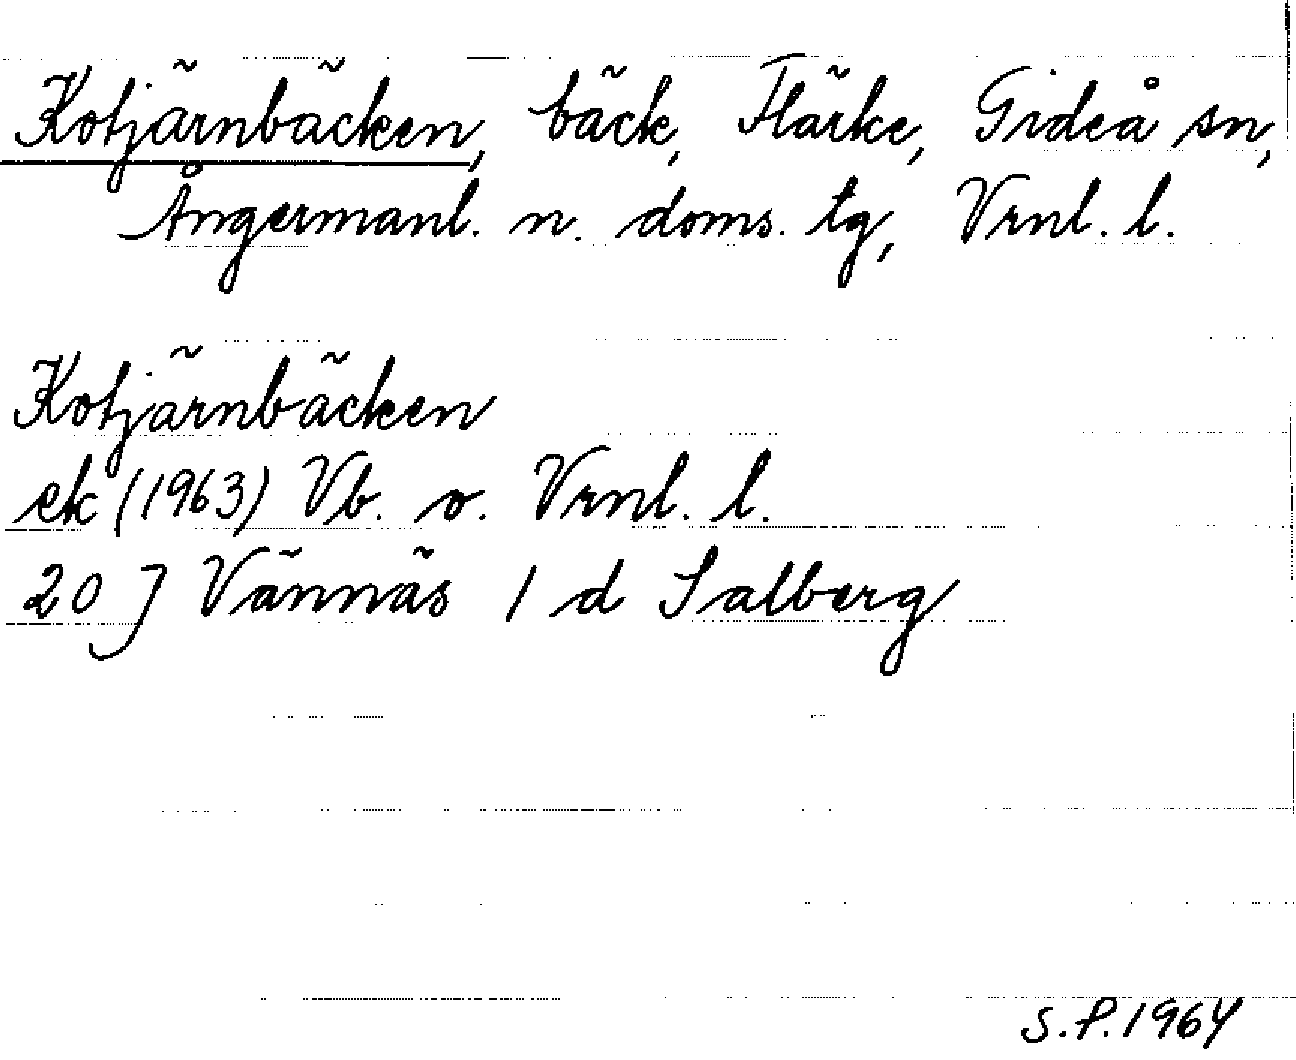 Kotjärnbäcken, bäck, Flärke, Gideå sn,
Ångermanl. n. doms. tg, Vrnl. l.
Kotjärnbäcken
ek (1963) Vb. o. Vrnl. l.
20 J Vännäs 1 d Salberg
S.P. 1964